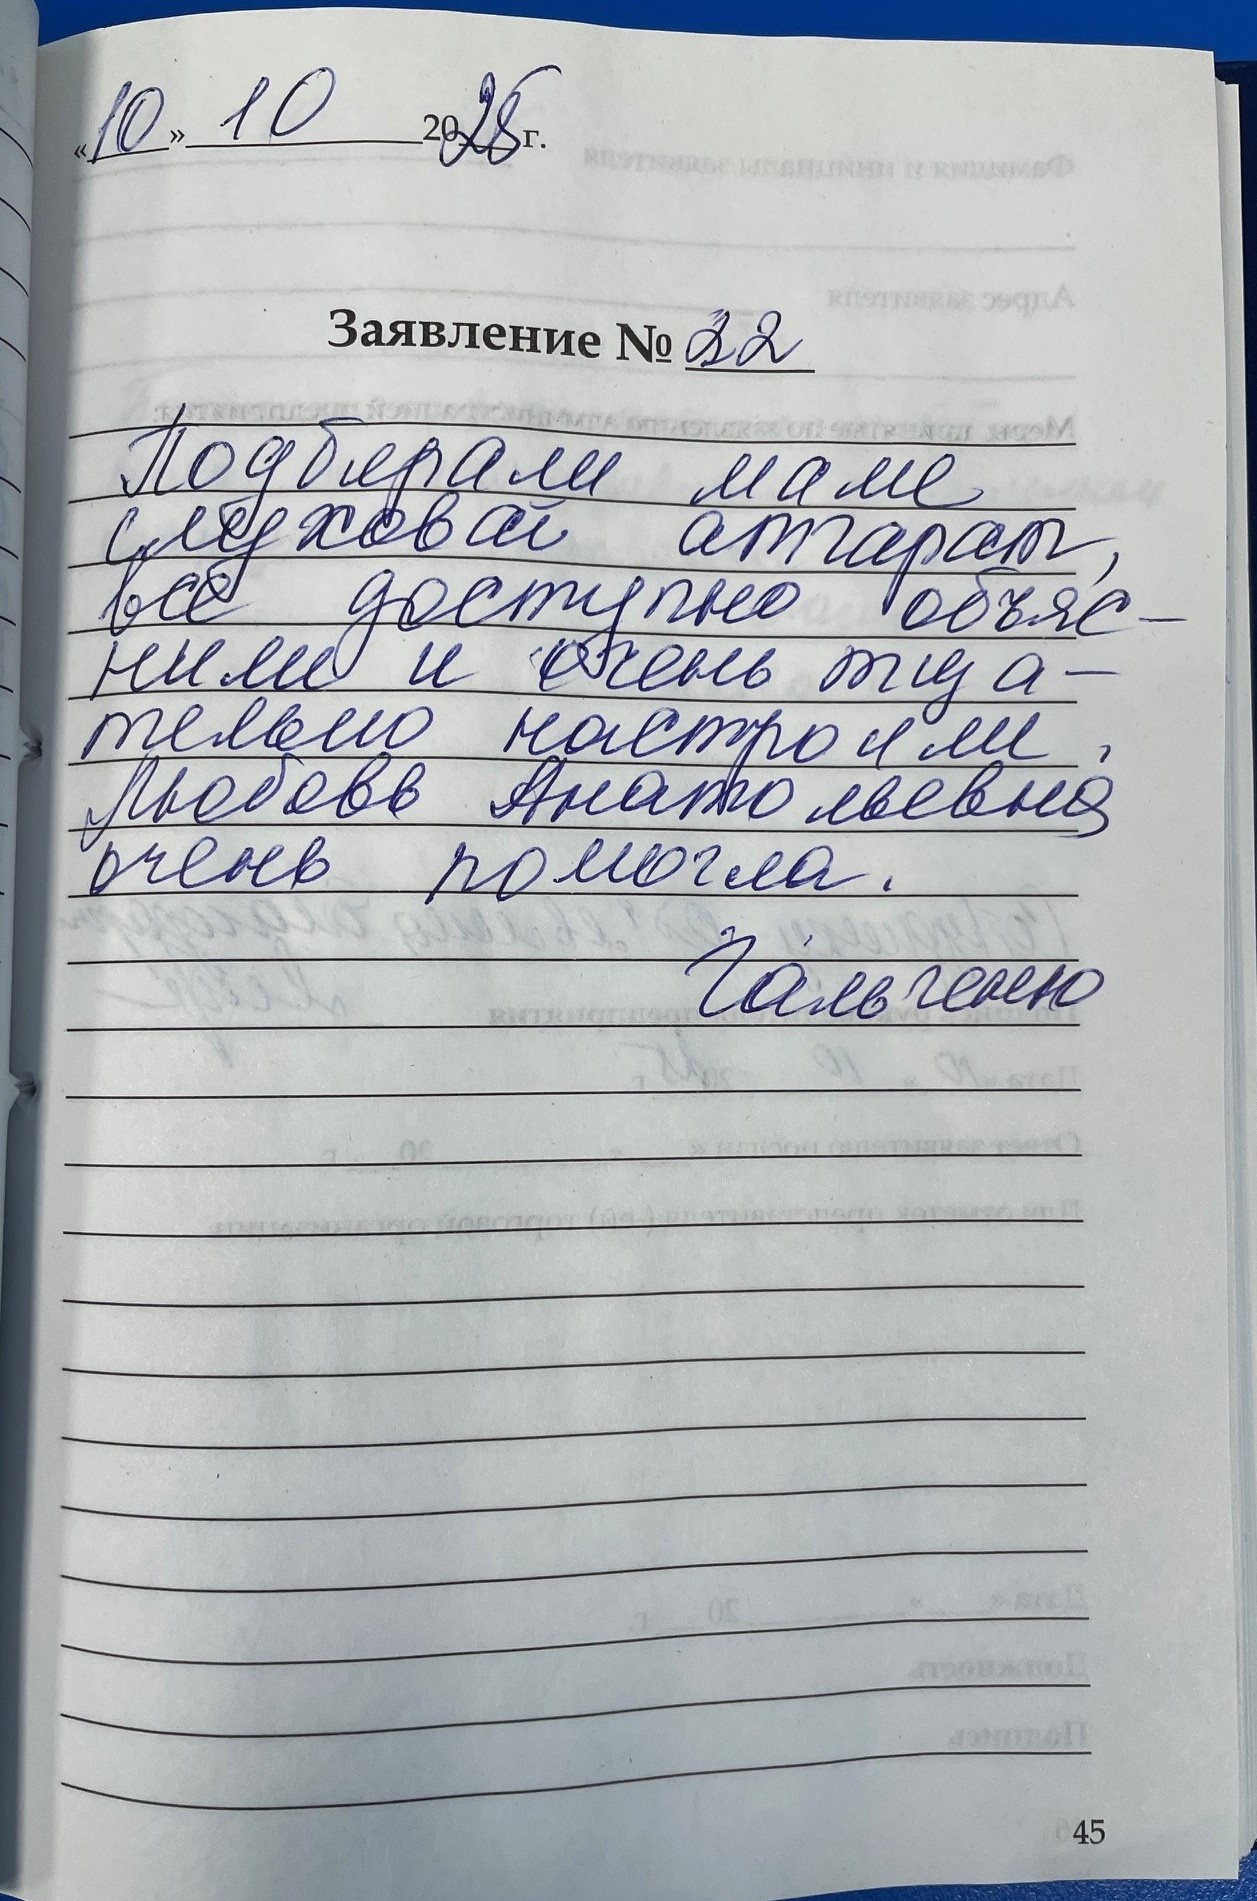 «10» 10 2025 г.
Заявление № 22
Подбирали маме
слуховой аппарат,
всё доступно объяс-
нили и очень тща-
тельно настроили.
Любовь Анатольевна
очень помогла.
45